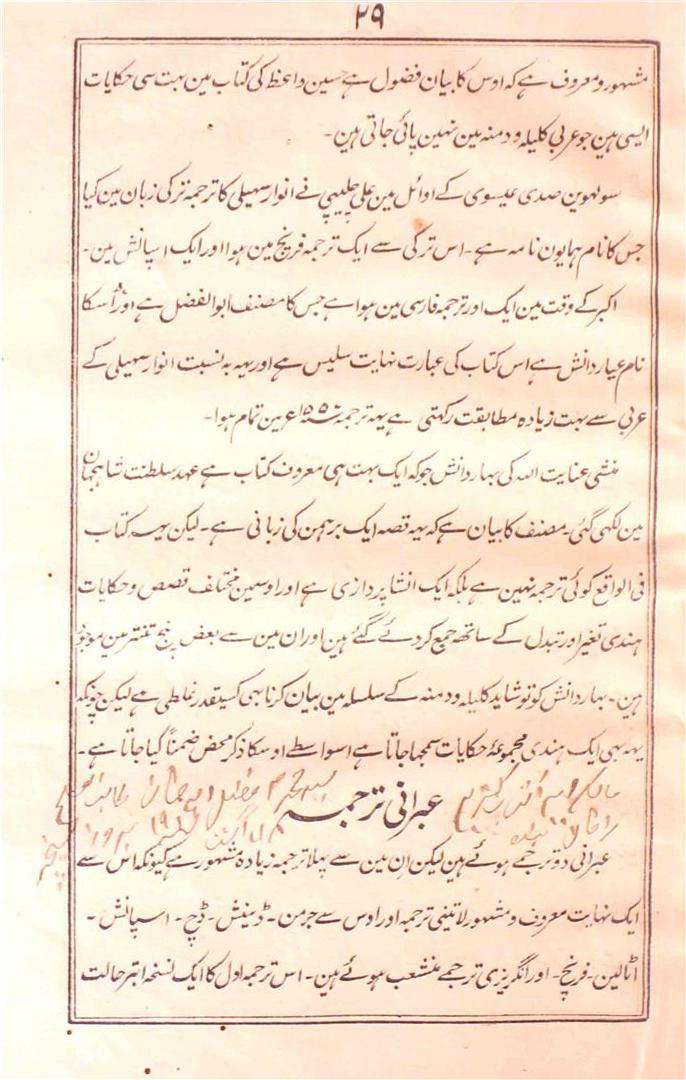 ۲۹
مشہور و معروف ہے کہ اوس کا بیان فضول ہے حسین واعظ کی کتاب مین بہت سی حکایات
ایسی ہین جو عربی کلیلہ و دمنہ مین نہین پائی جاتی ہین۔
سولہوین صدی عیسوی کے اوائل مین علی چلیپی نے انوار سہیلی کا ترجمہ ترکی زبان مین کیا
جس کا نام ہمایون نامہ ہے۔ اس ترکی سے ایک ترجمہ فرینچ مین ہوا اور ایک اسپانش مین۔
اکبر کے وقت مین ایک اور ترجمہ فارسی مین ہوا ہے جس کا مصنف ابو الفضل ہے اور اُسکا
نام عیار دانش ہے اس کتاب کی عبارت نہایت سلیس ہے اور یہہ بہ نسبت انوار سہیلی کے
عربی سے بہت زیادہ مطابقت رکھتی ہے یہہ ترجمہ مین تمام ہوا۔
منشی عنایت اللہ کی بہار دانش جو کہ ایک بہت ہی معروف کتاب ہے عہد سلطنت شاہجہان
مین لکہی گئی۔ مصنف کا بیان ہے کہ یہہ قصہ ایک برہمن کی زبانی ہے۔ لیکن یہہ کتاب
فی الواقع کوئی ترجمہ نہین ہے بلکہ ایک انشا پردازی ہے اور اوسمین مختلف قصص و حکایات
ہندی تغیر اور تبدل کے ساتھ جمع کر دئے گئے ہین اور ان مین سے بعض پنچ تنتر مین موجود
ہین۔ بہار دانش کو تو شاید کلیلہ و دمنہ کے سلسلہ مین بیان کرنا بہی کسیقدر غلطی ہے لیکن چونکہ
یہہ بہی ایک ہندی مجموعۂ حکایات سمجہا جاتا ہے اسواسطے اوسکا ذکر محض ضمناً کیا جاتا ہے۔
عبرانی ترجمہ
عبرانی دو ترجمے ہوئے ہین لیکن ان مین سے پہلا ترجمہ زیادہ مشہور ہے کیونکہ اس سے
ایک نہایت معروف و مشہور لاتینی ترجمہ اور اوس سے جرمن۔ ڈینش۔ ڈچ۔ اسپانش۔
اٹالین۔ فرینچ۔ اور انگریزی ترجمے منشعب ہوئے ہین۔ اس ترجمہ اول کا ایک نسخہ ابتر حالت